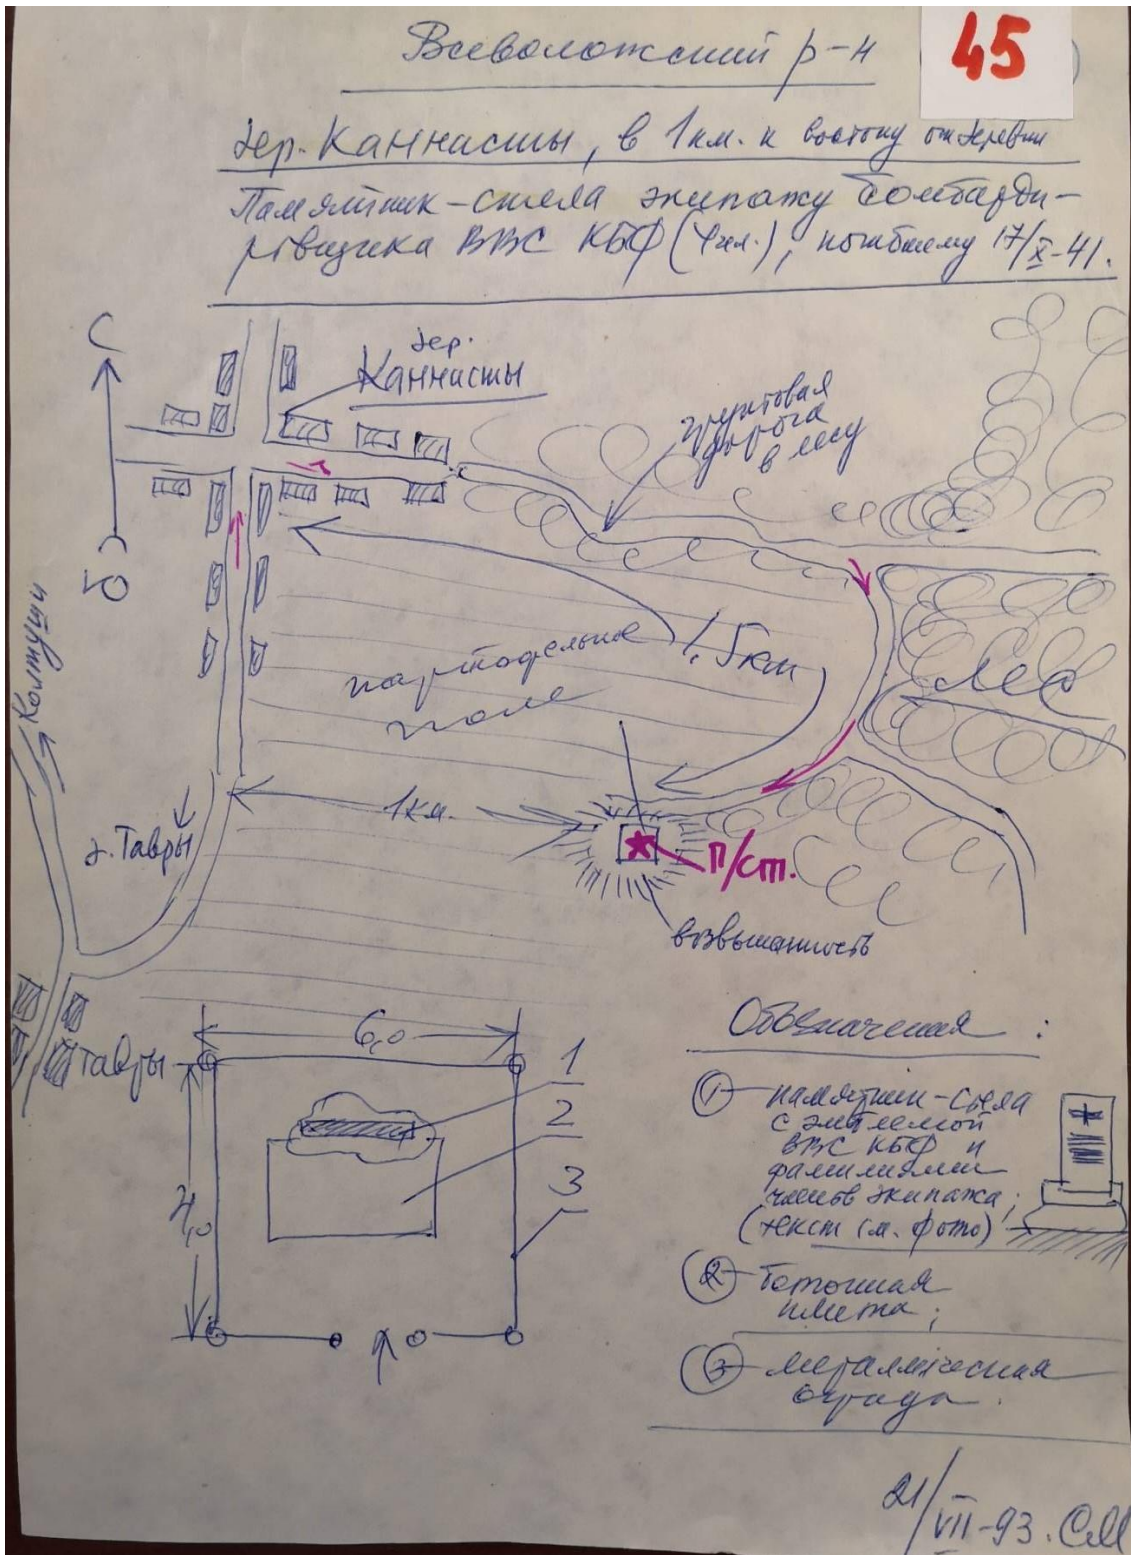 Всеволожский р-н
45
дер. Каннисты, в 1 км. к востоку от деревни
Памятник-стела экипажу бомбарди-
ровщика ВВС КБФ (4 чел.), погибшему 17/X-41.
С
Ю
дер.
Каннисты
грунтовая
дорога
в лесу
Колтуши
картофельное
поле
1,5 км
Лес
1 км.
д. Тавры
П/ст.
возвышенность
Тавры
6,0
4,0
1
2
3
Обозначения:
1 памятник-стела
с эмблемой
ВВС КБФ и
фамилиями
членов экипажа;
(текст см. фото)
2 Бетонная
плита;
3 металлическая
ограда.
21/VII-93.